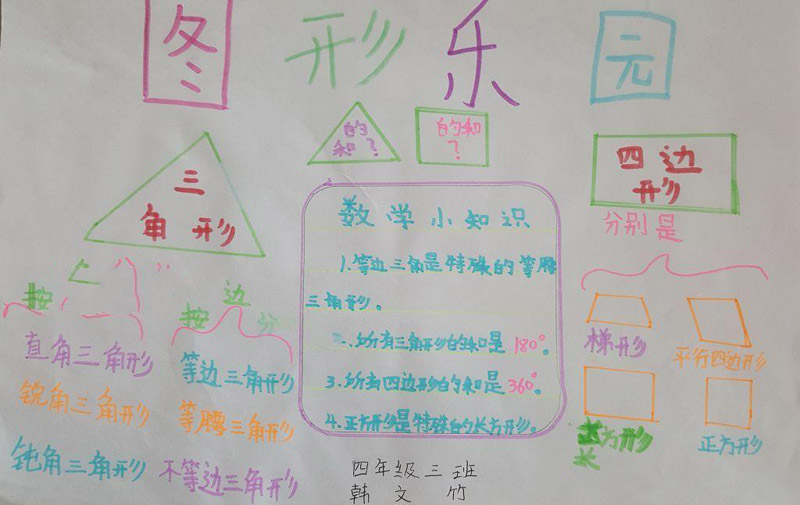 图形乐元
的
和？
的和
？
三
角形
四边
形
分别是
数学小知识
1.等边三角是特殊的等腰
三角形。
2.所有三角形的和是180°。
3.所有四边形的和是360°。
4.正方形是特殊的长方形。
按
直角三角形
锐角三角形
钝角三角形
按边分
等边三角形
等腰三角形
不等边三角形
梯形
平行四边形
长方形
正方形
四年级三班
韩文竹